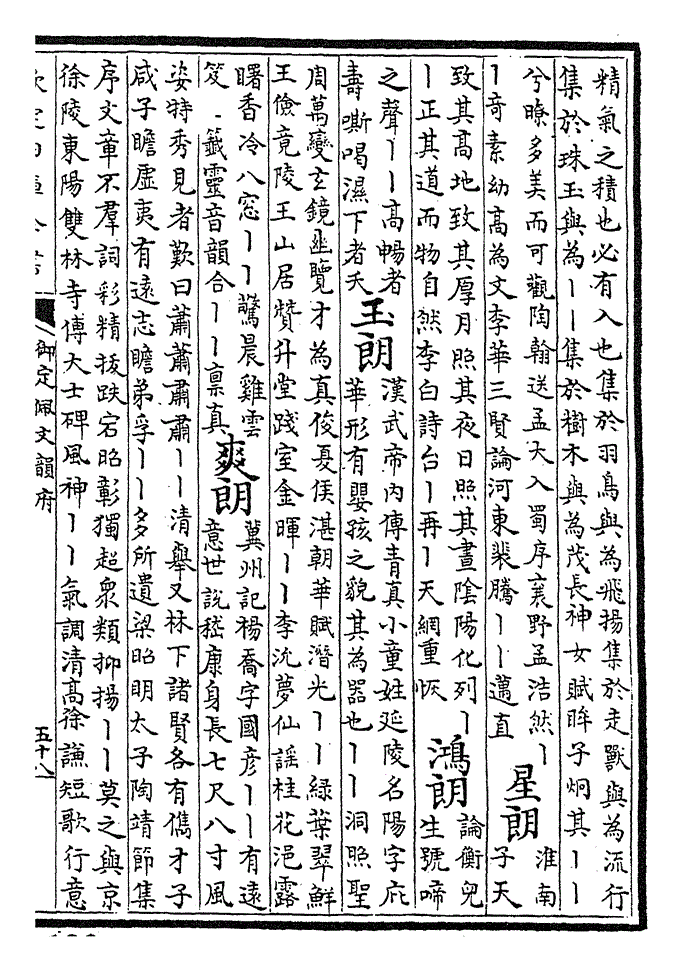 精氣之積也必有入也集於羽鳥與為飛揚集於走獸與為流行
集於珠玉與為丨丨集於樹木與為茂長神女賦眸子炯其丨丨
兮瞭多美而可觀陶翰送孟大入蜀序襄野孟浩然丨
丨奇素幼高為文李華三賢論河東裴騰丨丨邁直
星朗
淮南
子天
致其高地致其厚月照其夜日照其晝陰陽化列丨
丨正其道而物自然李白詩台丨再丨天網重恢
鴻朗
論衡兒
生號啼
之聲丨丨高暢者
壽嘶喝濕下者夭
玉朗
漢武帝內傳青真小童姓延陵名陽字庇
華形有嬰孩之貌其為器也丨丨洞照聖
周萬變玄鏡幽覽才為真俊夏侯湛朝華賦潛光丨丨綠葉翠鮮
王儉竟陵王山居贊升堂踐室金暉丨丨李沇夢仙謠桂花浥露
曙香冷八窓丨丨驚晨雞雲
笈丨籤靈音韻合丨丨禀真
爽朗
冀州記楊喬字國彦丨丨有遠
意世說嵇康身長七尺八寸風
姿特秀見者歎曰蕭蕭肅肅丨丨清舉又林下諸賢各有儁才子
咸子瞻虛夷有遠志瞻弟孚丨丨多所遺梁昭明太子陶靖節集
序文章不羣詞彩精拔跌宕昭彰獨超衆類抑揚丨丨莫之與京
徐陵東陽雙林寺傅大士碑風神丨丨氣調清高徐謙短歌行意
御定佩文韻府
五十八